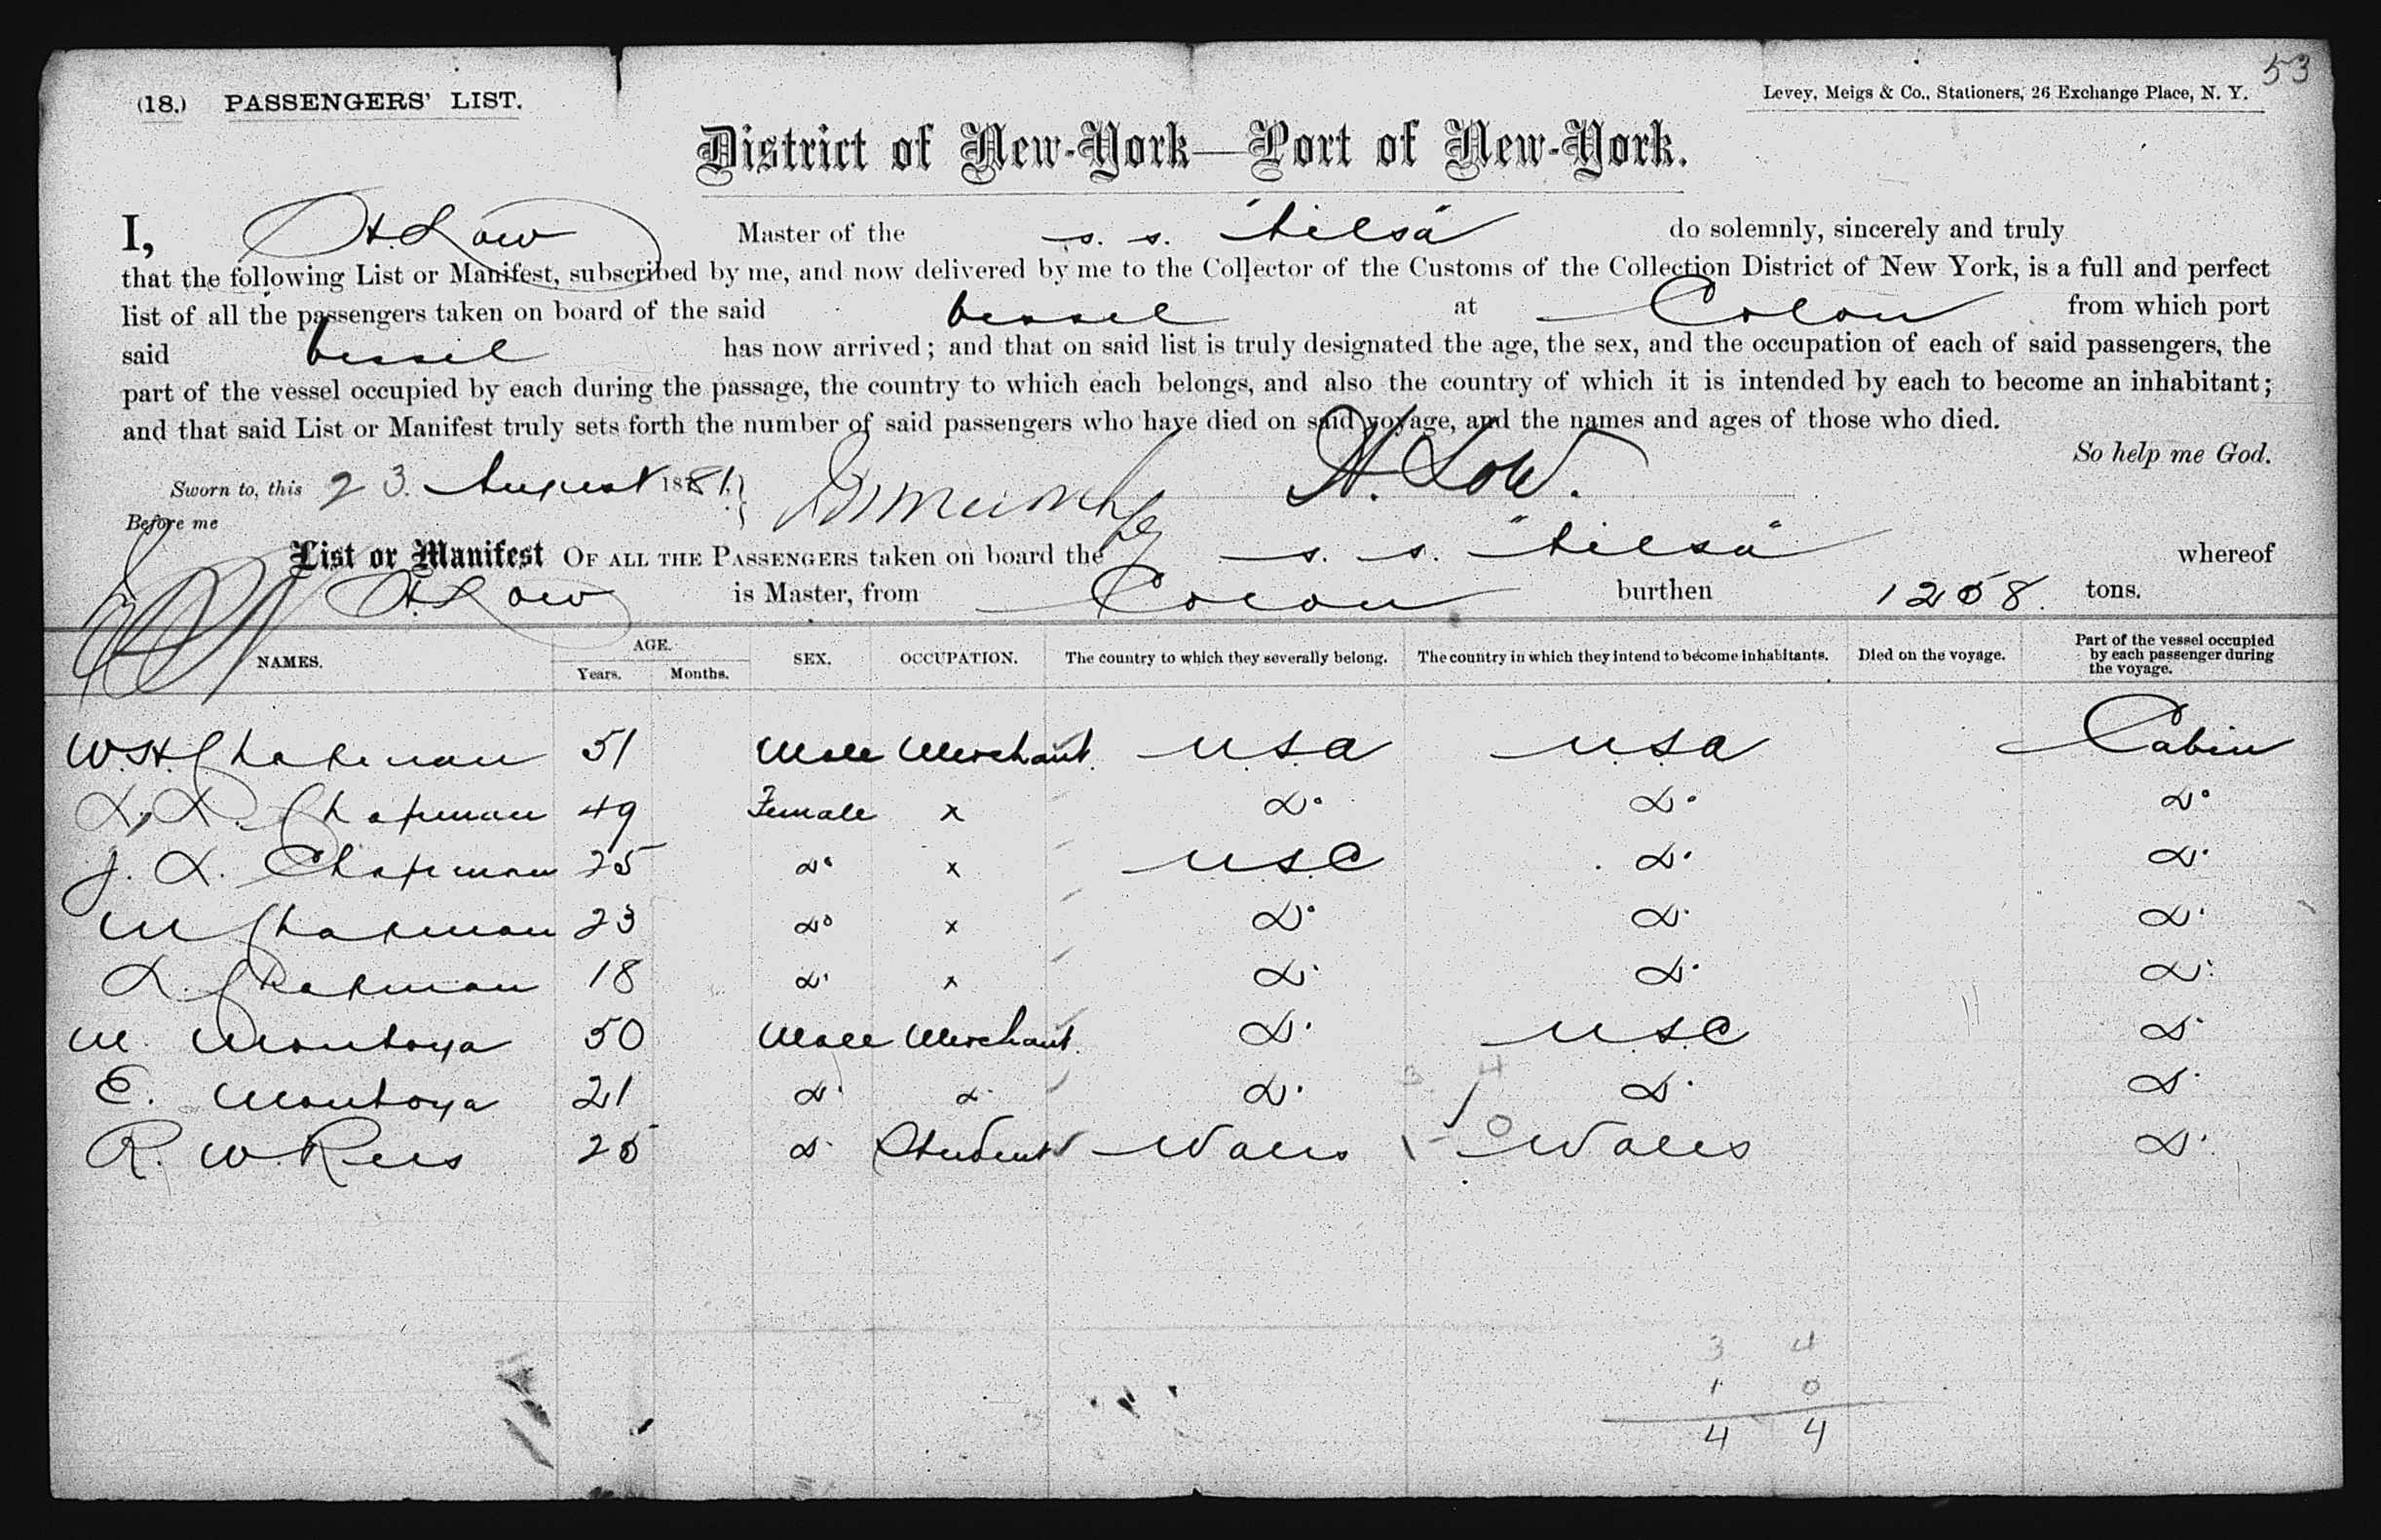 53
(18.) PASSENGERS' LIST.
Levey, Meigs & Co., Stationers, 26 Exchange Place, N. Y.
District of New-York—Port of New-York.
I, A Low Master of the s. s. "Ailsa" do solemnly, sincerely and truly
that the following List or Manifest, subscribed by me, and now delivered by me to the Collector of the Customs of the Collection District of New York, is a full and perfect
list of all the passengers taken on board of the said vessel at Colon from which port
said vessel has now arrived; and that on said list is truly designated the age, the sex, and the occupation of each of said passengers, the
part of the vessel occupied by each during the passage, the country to which each belongs, and also the country of which it is intended by each to become an inhabitant;
and that said List or Manifest truly sets forth the number of said passengers who have died on said voyage, and the names and ages of those who died.
So help me God.
Sworn to, this 23. August 1881. A. Low.
Before me
List or Manifest OF ALL THE PASSENGERS taken on board the s. s. "Ailsa" whereof
A. Low is Master, from Colon burthen 1258. tons.
NAMES. AGE. Years. Months. SEX. OCCUPATION. The country to which they severally belong. The country in which they intend to become inhabitants. Died on the voyage. Part of the vessel occupied by each passenger during the voyage.
W. H. Chapman 51 Male Merchant. U.S.A U.S.A Cabin
L. L. Chapman 49 Female x Do Do Do
J. L. Chapman 25 do x U.S.C Do Do
M Chapman 23 do x Do Do Do
L. Chapman 18 do x Do Do Do
M. Montoya 50 Male Merchant. Do U.S.C Do
E. Montoya 21 do do Do Do Do
R. W. Rees 25 do Student Wales Wales Do
3 4
1 0
4 4